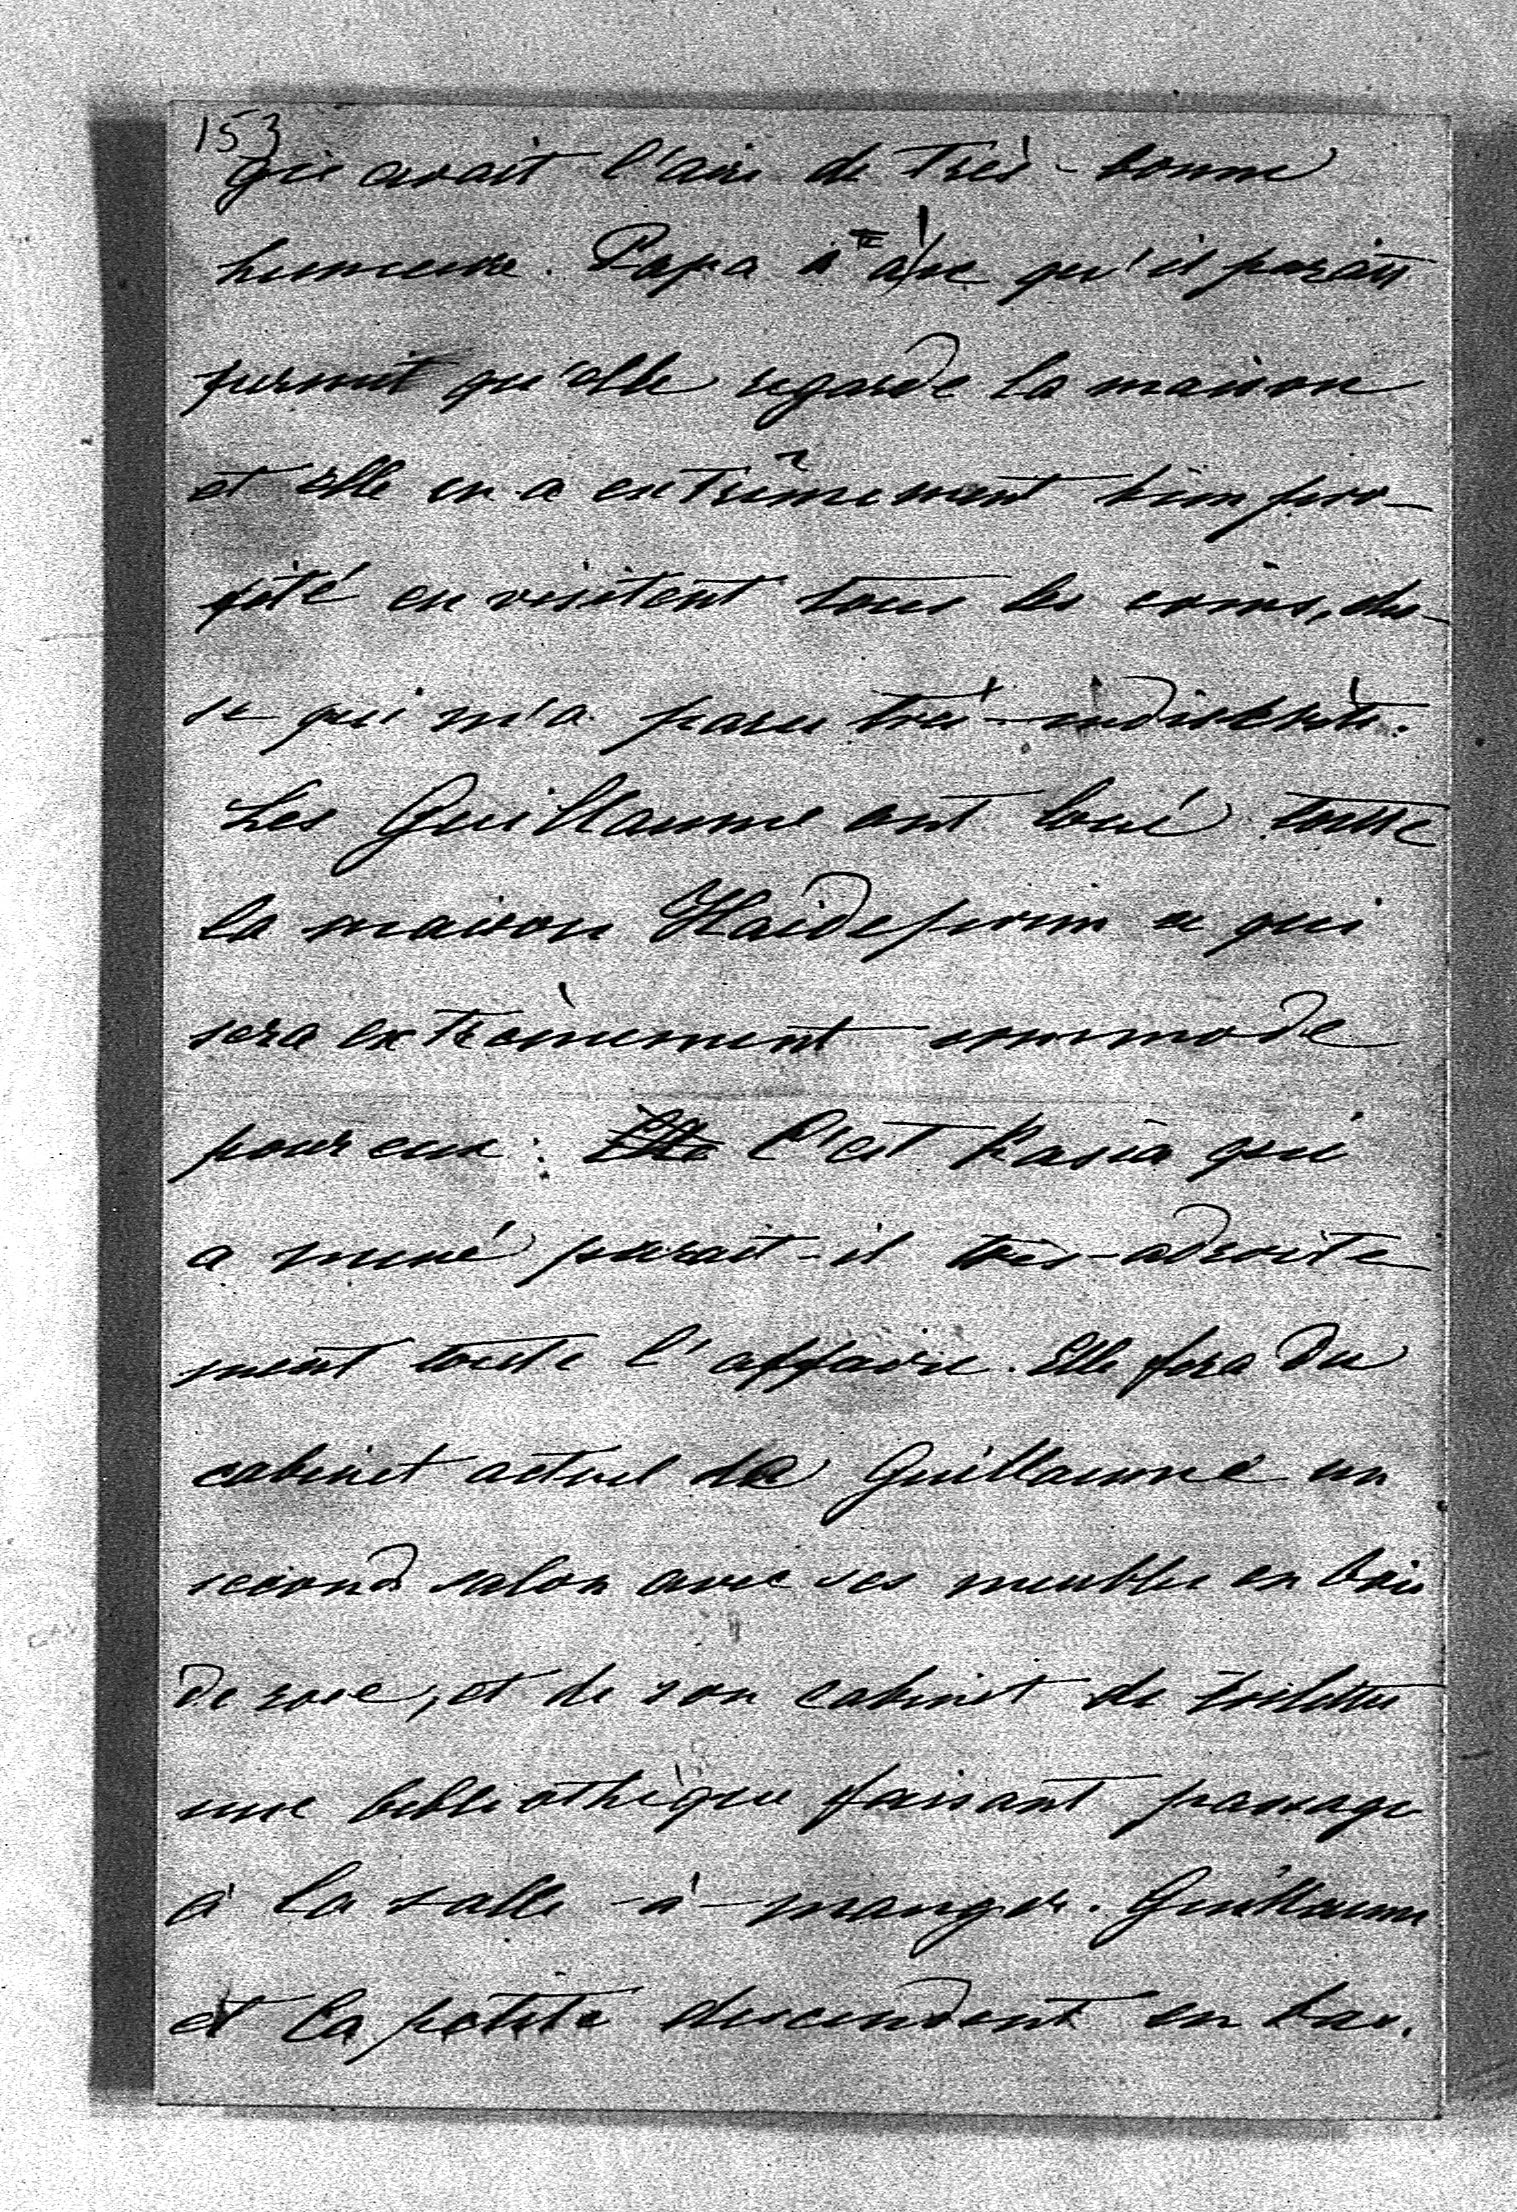 153
qui avait l'air de très-bonne
humeur. Papa a qu'il paraît
permit qu'elle regarde la maison
et elle en a extrêmement bien pro-
fité en visitant tous les coins, cho-
se qui m'a paru très-indiscrète.
Les Guillaume ont loué toute
la maison ce qui
sera extrèmement commode
pour eux: C'est Kasia qui
a mené parait-il très-adroite
ment toute l'affaire. Elle fera du
cabinet actuel de Guillaume un
second salon avec ses meubles en bois
de rose, et de son cabinet de toilette
une bibliothèque faisant passage
à la salle-à-manger. Guillaume
et la petite descendent en bas.